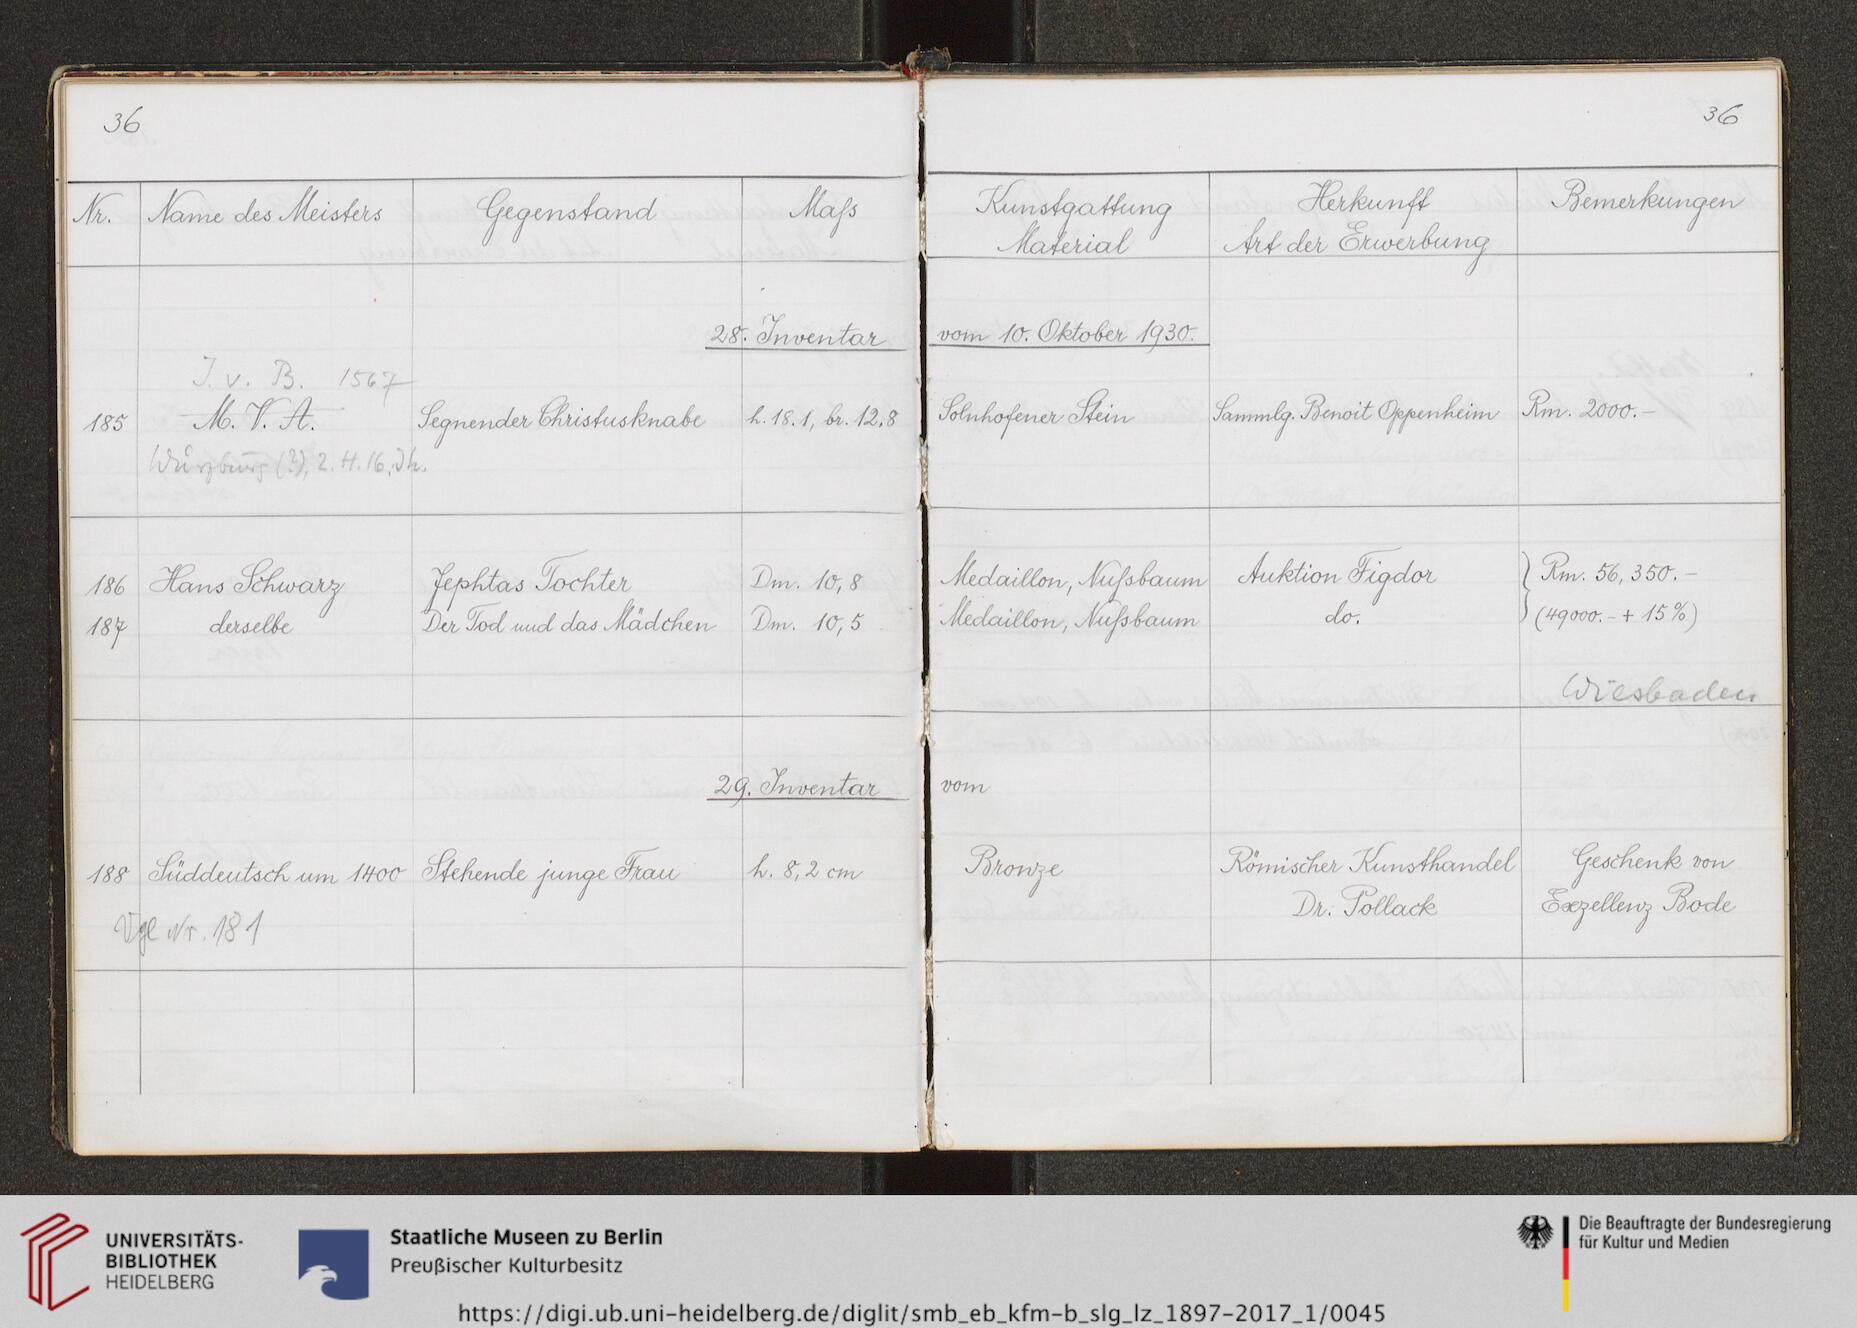 36
36
Nr. Name des Meisters Gegenstand Maſs Kunstgattung Material Herkunft Art der Erwerbung Bemerkungen
28. Inventar vom 10. Oktober 1930.
J. v. B. 1567
185 M. V. A. Segnender Christusknabe h. 18.1, br. 12,8 Solnhofener Stein Sammlg. Benoit Oppenheim Rm. 2000.–
Würzburg (?), 2. H. 16. Jh.
186 Hans Schwarz Jephtas Tochter Dm. 10,8 Medaillon, Nuſsbaum Auktion Figdor } Rm. 56,350.–
187 derselbe Der Tod und das Mädchen Dm. 10,5 Medaillon, Nuſsbaum do. (49000.– + 15%)
Wiesbaden
29. Inventar vom
188 Süddeutsch um 1400 Stehende junge Frau h. 8,2 cm Bronze Römischer Kunsthandel Geschenk von
Dr. Pollack Exzellenz Bode
Vgl Nr. 181
UNIVERSITÄTS-
BIBLIOTHEK
HEIDELBERG
Staatliche Museen zu Berlin
Preußischer Kulturbesitz
Die Beauftragte der Bundesregierung
für Kultur und Medien
https://digi.ub.uni-heidelberg.de/diglit/smb_eb_kfm-b_slg_lz_1897-2017_1/0045